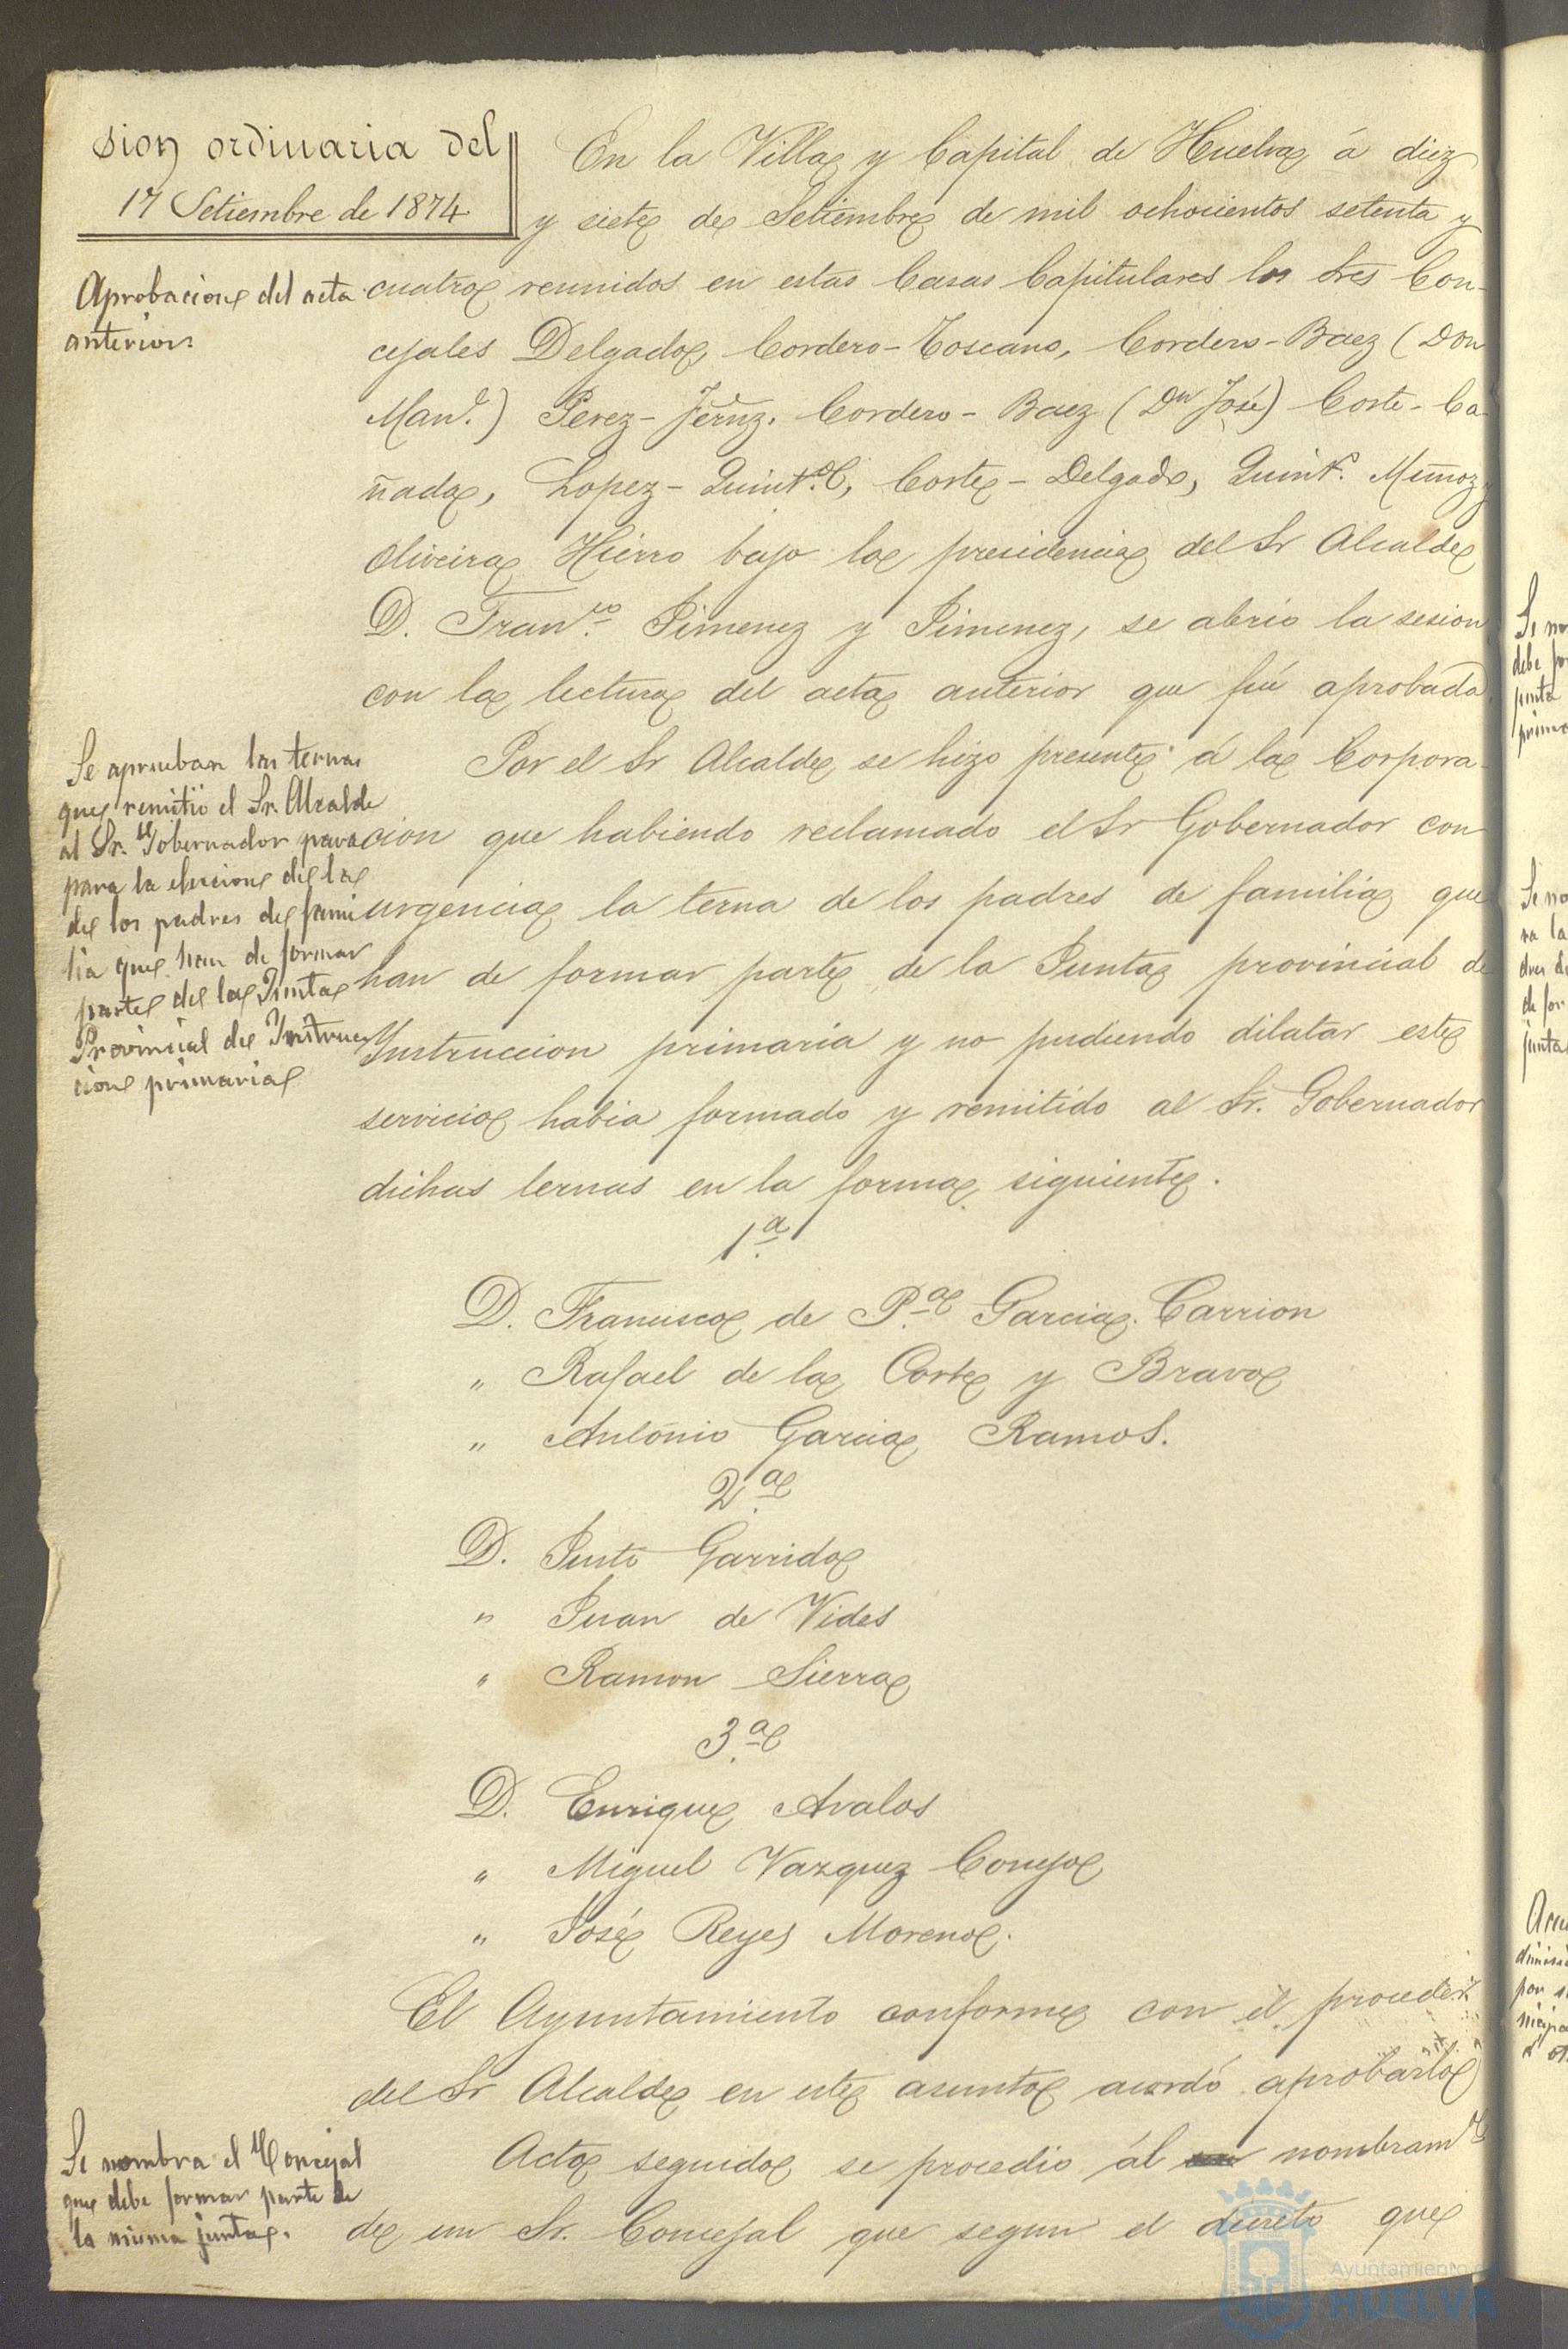 sion ordinaria del
17 Setiembre de 1874
Aprobacion del acta
anterior.
En la Villa y Capital de Huelva á diez
y siete de Setiembre de mil ochocientos setenta y
cuatro reunidos en estas Casas Capitulares los Sres Con-
cejales Delgado, Cordero-Toscano, Cordero-Baez (Don
Man.l) Perez-Fernz. Cordero-Baez (Dn José) Corte-Ca-
ñada, Lopez-Quint.o, Corte-Delgado, Quint.o Muñoz y
Oliveira Hierro bajo la presidencia del Sr Alcalde
D. Fran.co Jimenez y Jimenez, se abrio la sesion
con la lectura del acta anterior que fué aprobada.
Se aprueban las ternas
que remitió el Sr. Alcalde
al Sr. Gobernador para
para la eleccion de la
de los padres de fami
lia que han de formar
parte de la Junta
Provincial de Instruc
cion primaria
Por el Sr Alcalde se hizo presente á la Corpora-
cion que habiendo reclamado el Sr Gobernador con
urgencia la terna de los padres de familia que
han de formar parte de la Junta provincial de
Instruccion primaria y no pudiendo dilatar este
servicio habia formado y remitido al Sr. Gobernador
dichas ternas en la forma siguiente.
1.a
D. Francisco de P.a Garcia Carrion
" Rafael de la Corte y Bravo
" Antonio Garcia Ramos.
2.a
D. Justo Garrido
" Juan de Vides
" Ramon Sierra
3.a
D. Enrique Avalos
" Miguel Vazquez Conejo
" José Reyes Moreno.
El Ayuntamiento conforme con el proceder
del Sr Alcalde en este asunto acordó aprobarlo
Se nombra el Concejal
que debe formar parte de
la misma junta.
Acto seguido se procedio ál nombramto
de un Sr. Concejal que segun el decreto que
Se no
debe for
junta
prima
Se no
ra la
dres d
de for
junta
Ayuntamiento de
HUELVA